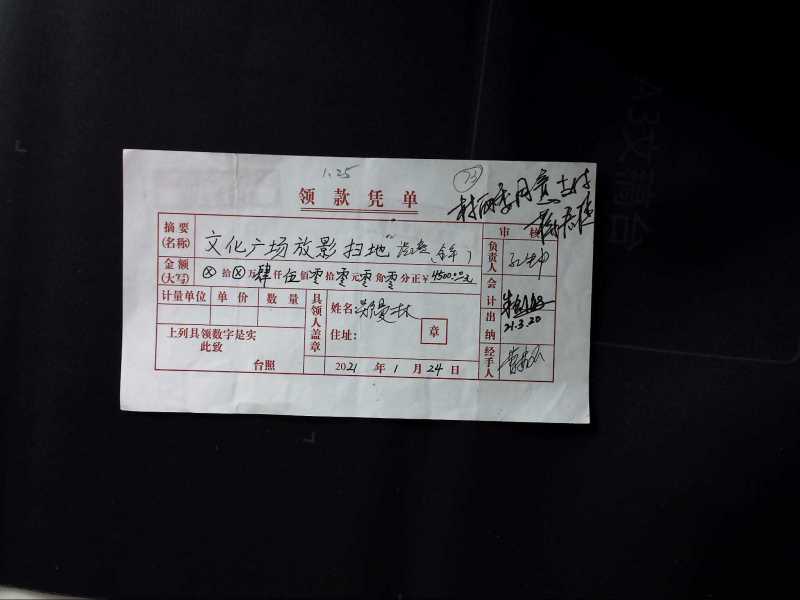 1.25
73
领款凭单
村两委同意支付
审核
摘要(名称) 文化广场放影扫地 (全年)
负责人
金额(大写) ⊗拾⊗万肆仟伍佰零拾零元零角零分正¥4500.00元
会计
计量单位 单价 数量
具领人盖章
姓名
住址: 章
出纳
21.3.20
上列具领数字是实
此致
台照
2021年1月24日
经手人
A3文藏台